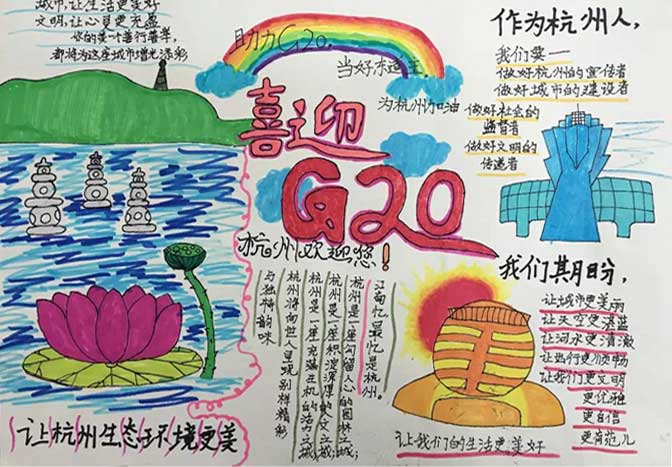 城市,让生活更美好
文明,让心灵更充盈
您的每一个善行善举,
都将为这座城市增光添彩
助力G20,
当好东道主,
为杭州加油
喜迎
G20
杭州欢迎您!
作为杭州人,
我们要——
做好杭州的宣传者
做好城市的建设者
做好社会的
监督者
做好文明的
传递者
江南忆,最忆是杭州。
杭州是一座勾留人心的园林之城;
杭州是一座积淀深厚的人文之城;
杭州是一座充满生机的活力之城;
杭州将向世人呈现别样精彩
与独特韵味
我们期盼,
让城市更美丽
让天空更湛蓝
让河水更清澈
让出行更顺畅
让我们更文明
更优雅
更自信
更有范儿
让我们的生活更美好
让杭州生态环境更美